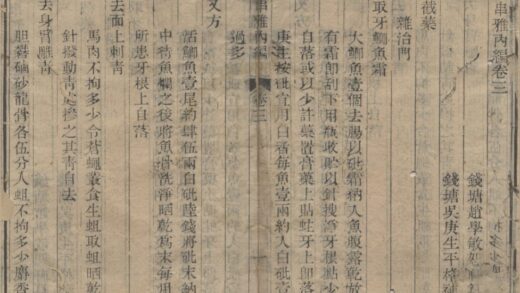 串雅內編卷三
錢塘趙學敏
錢塘吳庚生平格
截藥
雜治門
取牙鯽魚霜
大鯽魚壹個去腸以砒霜納入魚腹露乾放
有霜刮下用瓶收貯以針撥牙根點少
自落或以少許藥置膏藥上貼蛀牙上卽落
庚生按砒宜用白者每魚壹兩約入白砒壹
過多
卷三
又方
活鯽魚壹尾約肆伍兩白砒陸錢將砒末納
中待魚爛之後將魚骨洗淨晒乾爲末每用
所患牙根上自落
去面上刺青
馬肉不拘多少令蒼蠅叢食生蛆取蛆晒乾
針撥動青處摻之其青自去
去身臂雕青
胆礬硇砂龍骨各伍分人蛆不拘多少麝香